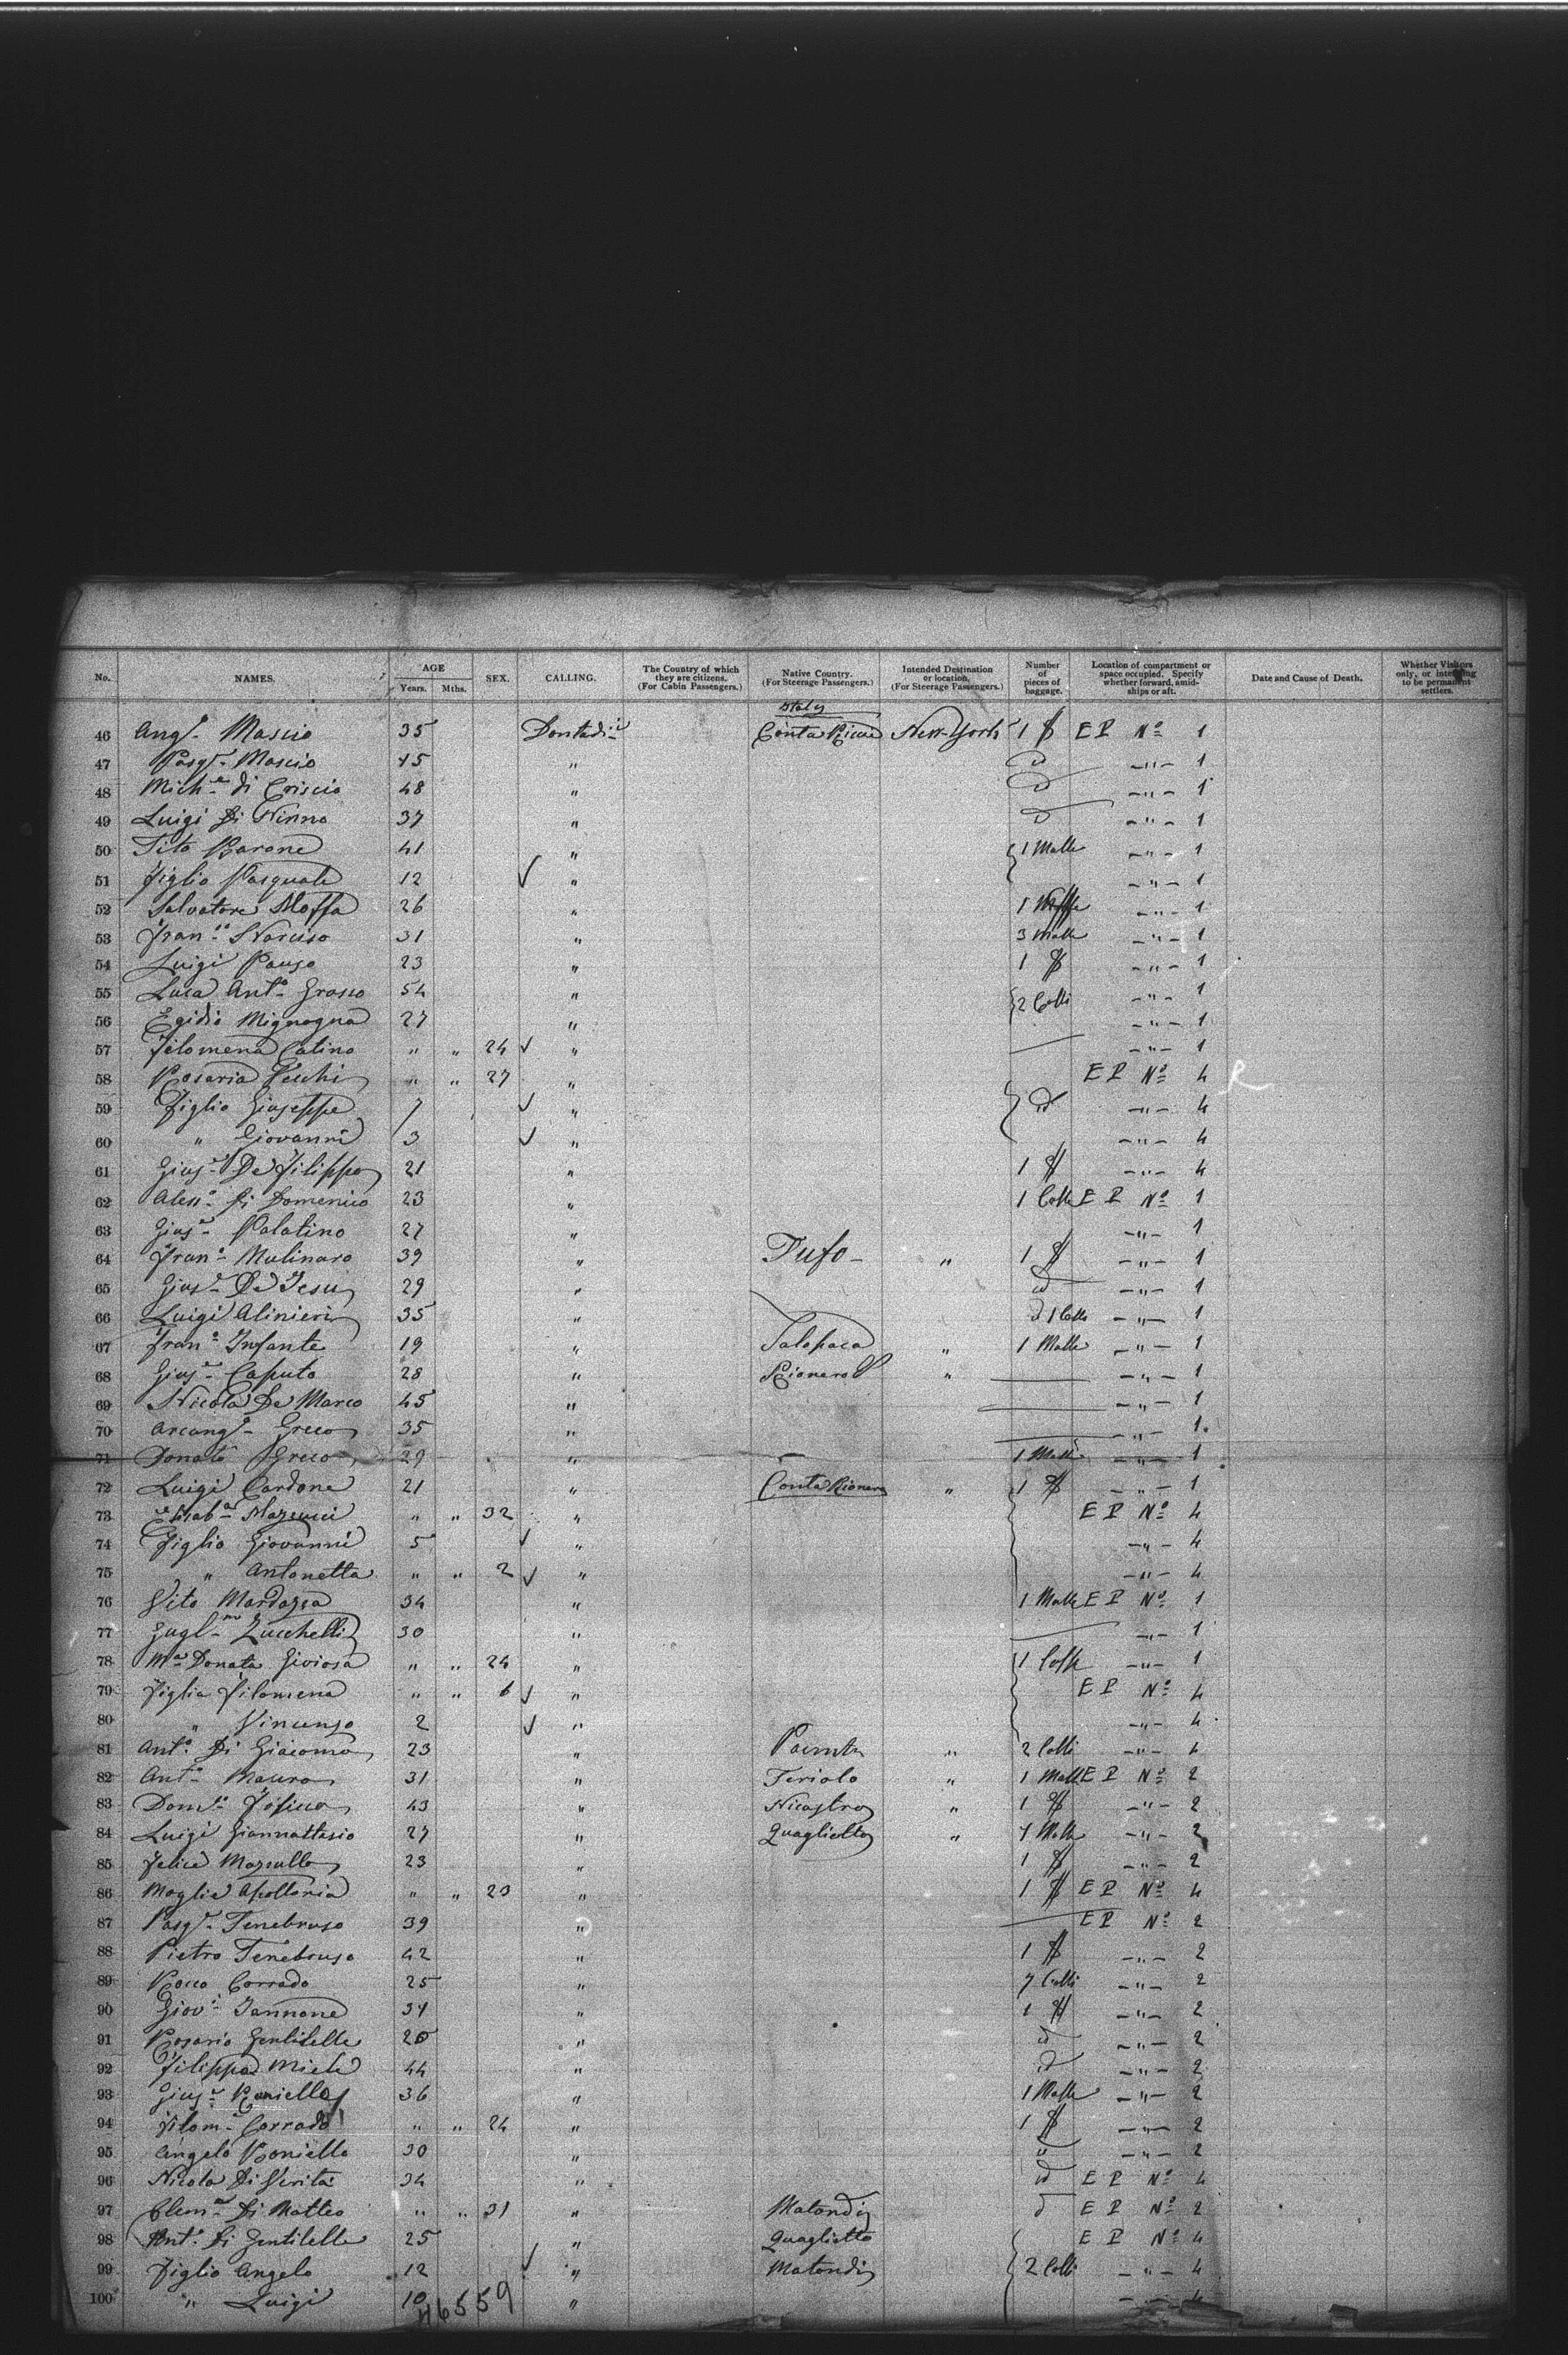 No. NAMES. AGE Years. Mths. SEX. CALLING. The Country of which they are citizens. (For Cabin Passengers.) Native Country. (For Steerage Passengers.) Intended Destination or location. (For Steerage Passengers.) Number of pieces of baggage. Location of compartment or space occupied. Specify whether forward, amidships or aft. Date and Cause of Death. Whether Visitors only, or intending to be permanent settlers.
Italy
46 Ang.o Mascio 35 New-York 1 E P No 1
47 Pasq.e Mascio 45 " -"- 1
48 Mich.e di Criscio 48 " -"- 1
49 Luigi Di Ninno 37 " -"- 1
50 Tito Barone 41 " 1 Malle -"- 1
51 Figlio Pasquale 12 " -"- 1
52 Salvatore Moffa 26 " 1 -"- 1
53 Fran.co Narciso 31 " 3 Malle -"- 1
54 Luigi 23 " 1 -"- 1
55 Luca Ant.o Grosso 54 " 2 Colli -"- 1
56 Egidio Mignogna 27 " -"- 1
57 Filomena Catino " " 24 " -"- 1
58 Rosaria Vecchi " " 27 " E P No 4 R
59 Figlio Giuseppe 7 " id -"- 4
60 " Giovanni 3 " -"- 4
61 Gius.e De Filippo 21 " 1 -"- 4
62 Aless.o Di Domenico 23 " 1 Colli E P No 1
63 Gius.e Palatino 27 " -"- 1
64 Fran.o Mulinaro 39 " Tufo - " 1 -"- 1
65 Gius.e De Jesu 29 " id -"- 1
66 Luigi Alinieri 35 " 1 Colli -"- 1
67 Fran.o Infante 19 " Salopaca " 1 Malle -"- 1
68 Gius.e Caputo 28 " Rionero " -"- 1
69 Nicola De Marco 45 " -"- 1
70 Arcang.o Greco 35 " -"- 1
71 Donato Greco 29 " 1 Malle -"- 1
72 Luigi Cardone 21 " Conta Rionero " 1 -"- 1
73 Elisab.a " " 32 " E P No 4
74 Figlio Giovanni 5 " -"- 4
75 " Antonetta " " 2 " -"- 4
76 Vito 34 " 1 Malle E P No 1
77 Gugl.mo Zucchelli 30 " -"- 1
78 M.a Donata Gioiosa " " 24 " 1 -"- 1
79 Figlia Filomena " " 6 " E P No 4
80 " Vincenzo 2 " -"- 4
81 Ant.o Di Giacomo 23 " " 2 Colli -"- 4
82 Ant.o Mauro 31 " Teriolo " 1 Malle E P No 2
83 Dom.co 43 " Nicastro " 1 -"- 2
84 Luigi Giannattasio 27 " Quaglietta " 1 Malle -"- 2
85 Felice Mazzullo 23 " 1 -"- 2
86 Moglie Apollonia " " 23 " 1 E P No 4
87 Pasq.e Tenebruso 39 " E P No 2
88 Pietro Tenebruso 42 " 1 -"- 2
89 Rocco Corrado 25 " 7 Colli -"- 2
90 Giov.i Iannone 34 " 1 -"- 2
91 Rosario Gentilella " id -"- 2
92 Filippo Miele 44 " id -"- 2
93 Gius.e Roniello 36 " 1 Malle -"- 2
94 Filom.a Corrado " " 24 " 1 -"- 2
95 Angelo Roniello 30 " -"- 2
96 Nicola Di Verita 34 " id E P No 4
97 Clem.a Di Matteo " " 31 " Matondi E P No 2
98 Ant.o Di Gentilella 25 " Quaglietta E P No 4
99 Figlio Angelo 12 " Matondi 2 Colli -"- 4
100 " Luigi 10 " -"- 4
46559